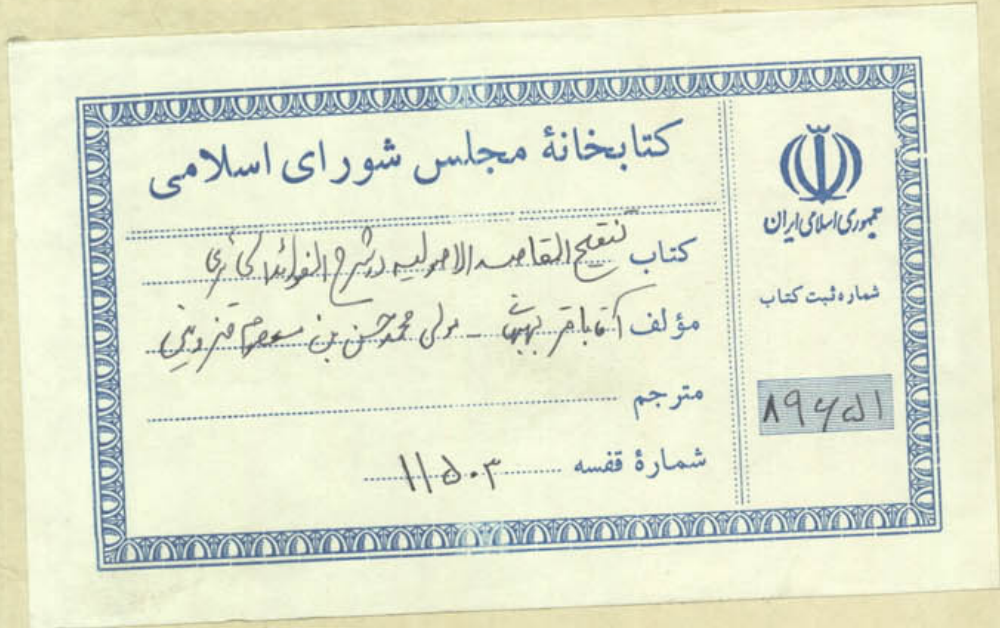 کتابخانهٔ مجلس شورای اسلامی
کتاب تنقیح المقاصد الاصولیه در شرح الفوائد الحائری
مؤلف آقا باقر بهبهانی - مولی محمد حسن بن معصوم قزوینی
مترجم
شمارهٔ قفسه ۱۱۵۰۳
جمهوری اسلامی ایران
شماره ثبت کتاب